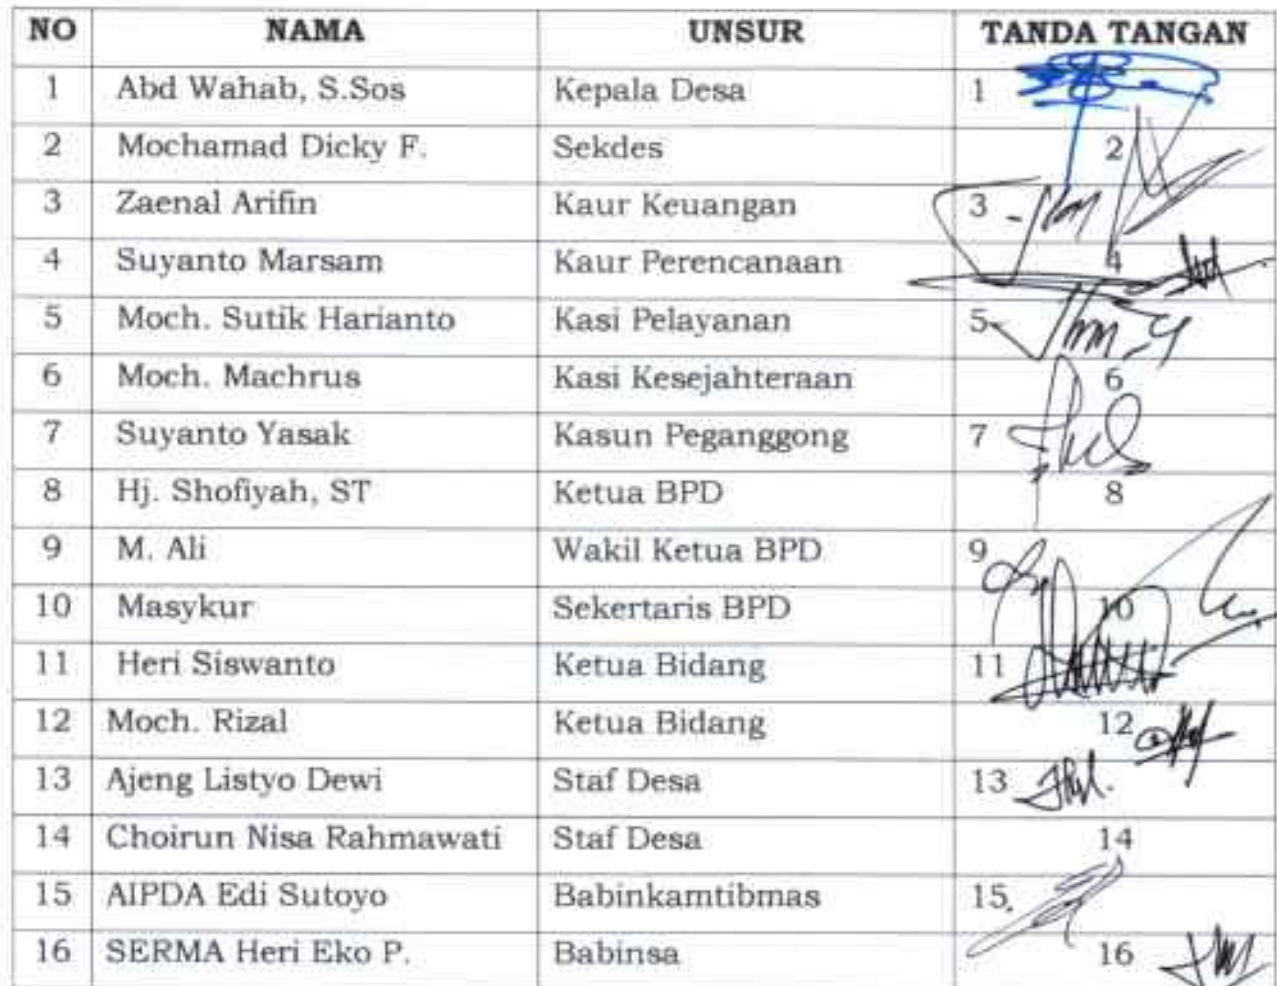 NO NAMA UNSUR TANDA TANGAN
1 Abd Wahab, S.Sos Kepala Desa 1
2 Mochamad Dicky F. Sekdes 2
3 Zaenal Arifin Kaur Keuangan 3
4 Suyanto Marsam Kaur Perencanaan 4
5 Moch. Sutik Harianto Kasi Pelayanan 5
6 Moch. Machrus Kasi Kesejahteraan 6
7 Suyanto Yasak Kasun Peganggong 7
8 Hj. Shofiyah, ST Ketua BPD 8
9 M. Ali Wakil Ketua BPD 9
10 Masykur Sekertaris BPD 10
11 Heri Siswanto Ketua Bidang 11
12 Moch. Rizal Ketua Bidang 12
13 Ajeng Listyo Dewi Staf Desa 13
14 Choirun Nisa Rahmawati Staf Desa 14
15 AIPDA Edi Sutoyo Babinkamtibmas 15
16 SERMA Heri Eko P. Babinsa 16